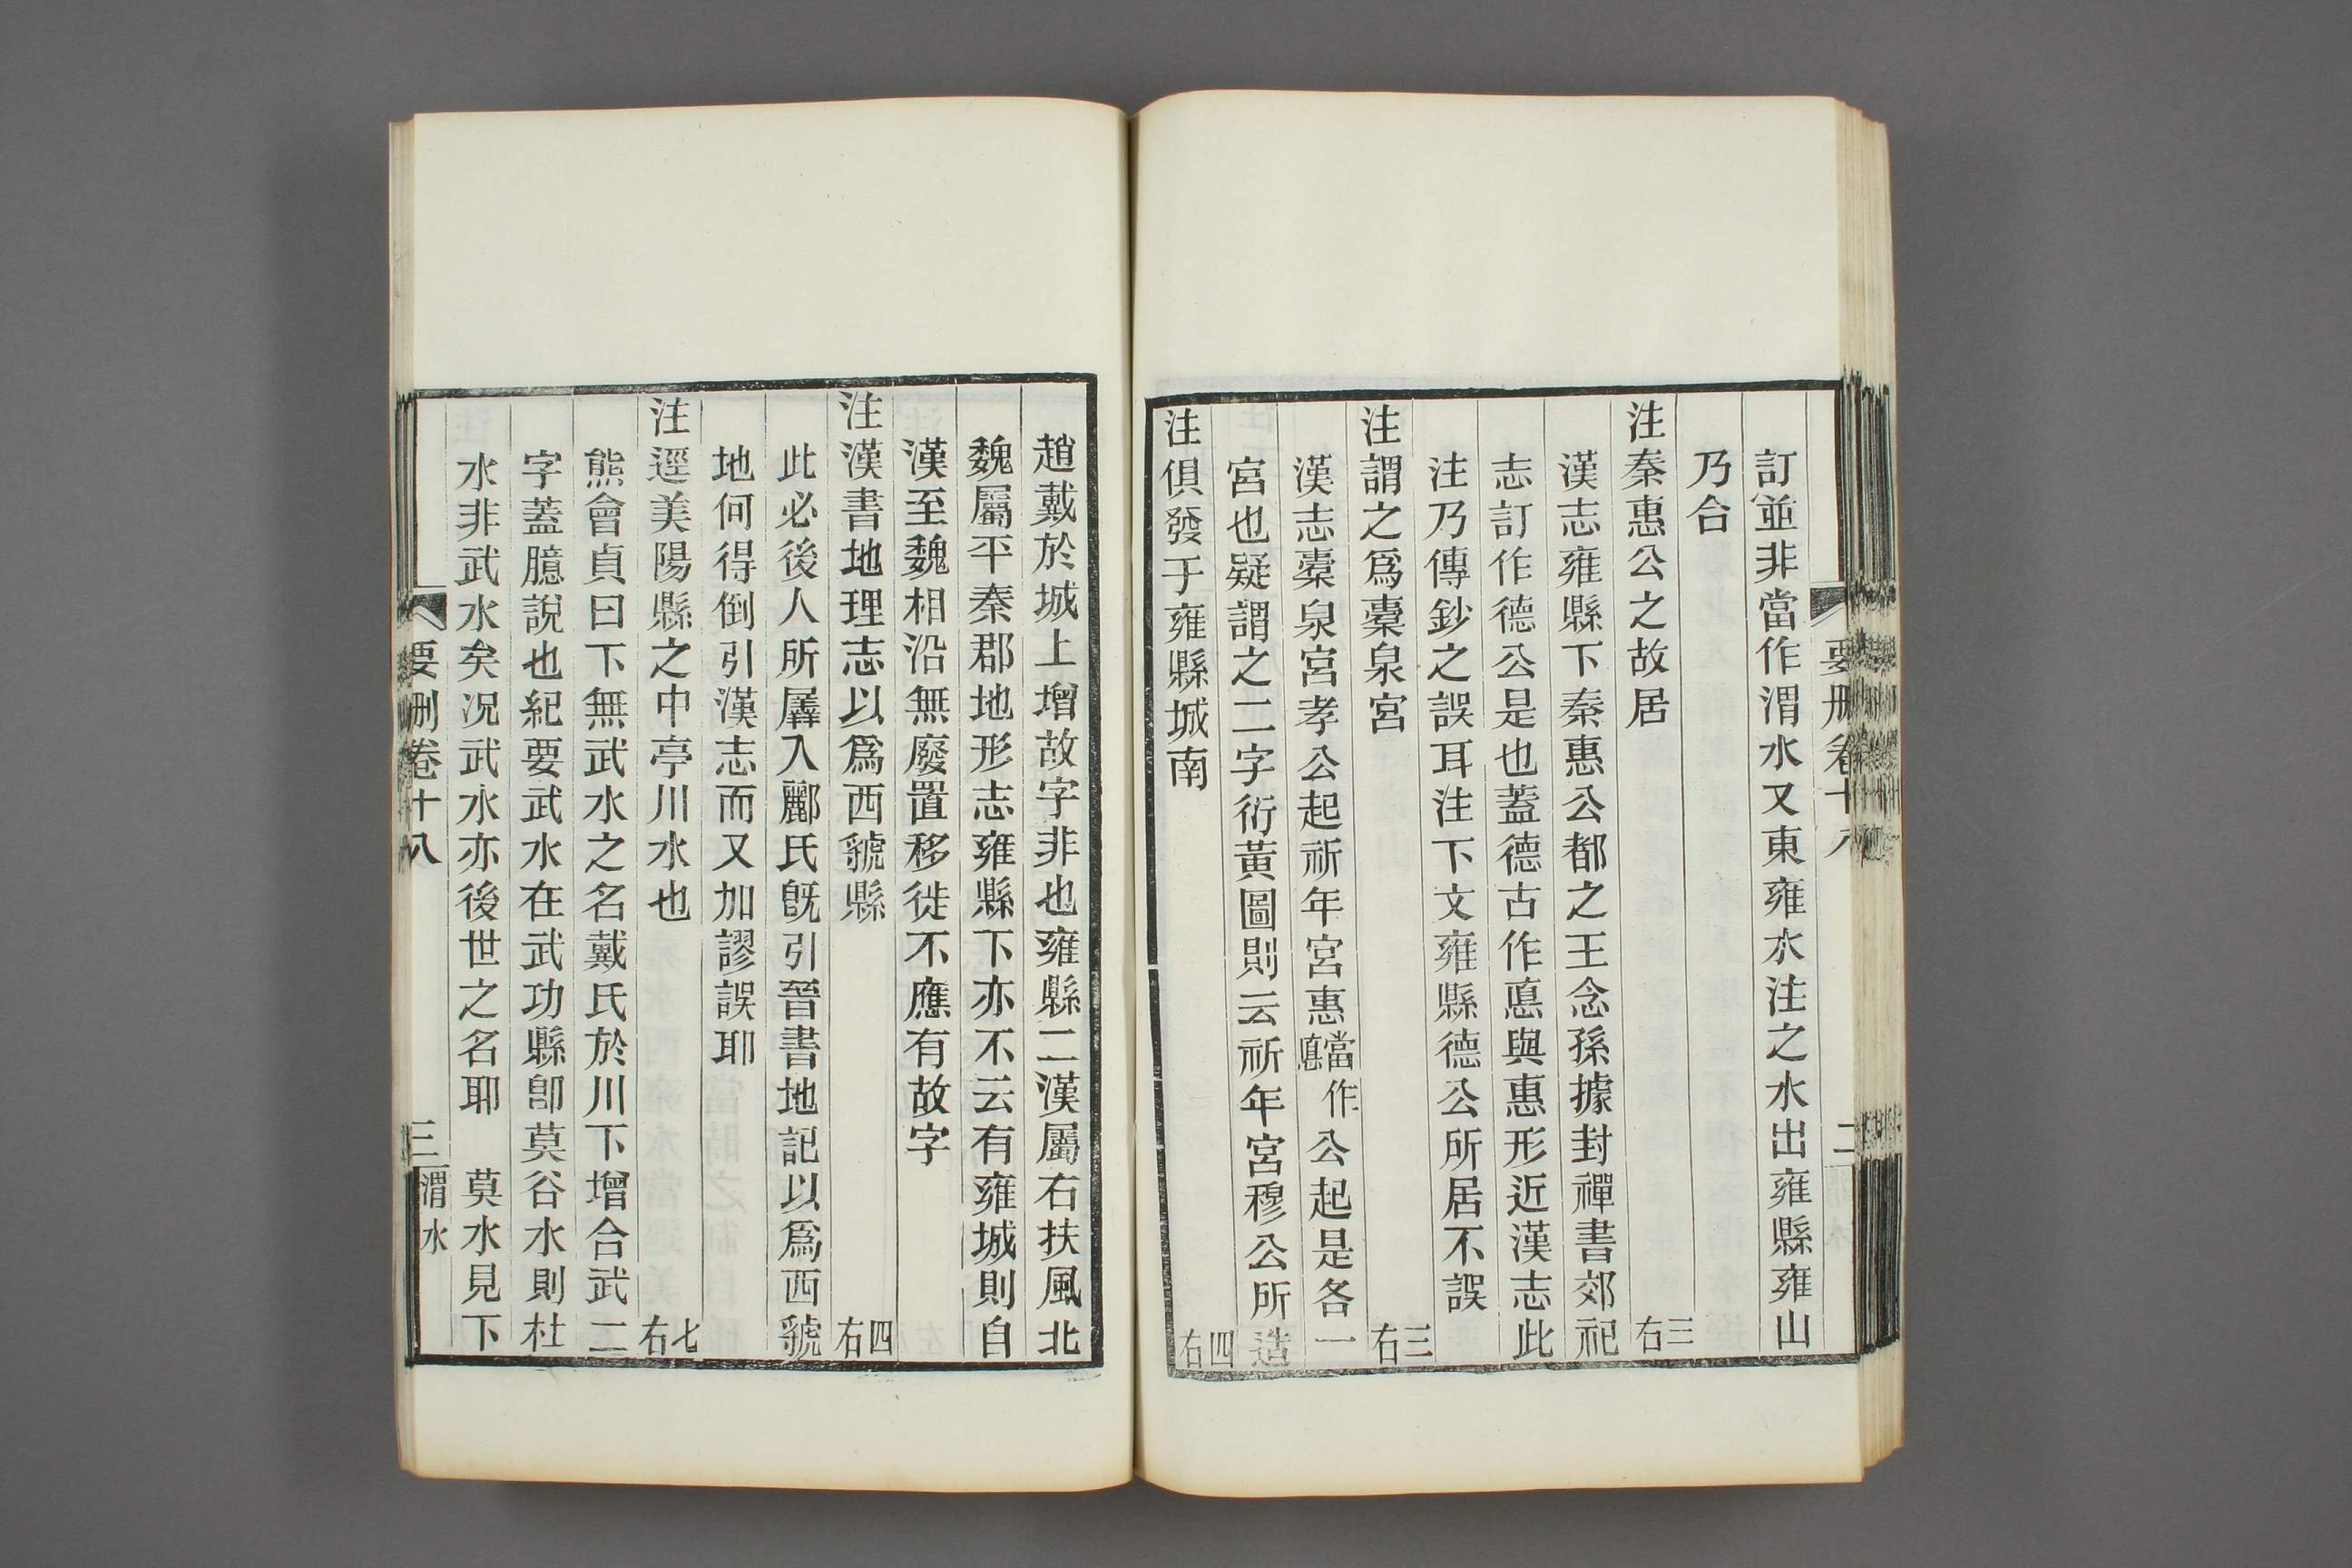 要刪卷十八 二
訂並非當作渭水又東雍水注之水出雍縣雍山
乃合
注秦惠公之故居 三右
漢志雍縣下秦惠公都之王念孫據封禪書郊祀
志訂作德公是也蓋德古作悳與惠形近漢志此
注乃傳鈔之誤耳注下文雍縣德公所居不誤
注謂之為橐泉宮 三右
漢志橐泉宮孝公起祈年宮惠當作悳公起是各一
宮也疑謂之二字衍黃圖則云祈年宮穆公所造
注俱發于雍縣城南 四右
趙戴於城上增故字非也雍縣二漢屬右扶風北
魏屬平秦郡地形志雍縣下亦不云有雍城則自
漢至魏相沿無廢置移徙不應有故字
注漢書地理志以為西虢縣 四右
此必後人所羼入酈氏旣引晉書地記以為西虢
地何得倒引漢志而又加謬誤耶
注逕美陽縣之中亭川水也 七右
熊會貞曰下無武水之名戴氏於川下增合武二
字蓋臆說也紀要武水在武功縣卽莫谷水則杜
水非武水矣况武水亦後世之名耶 莫水見下
要刪卷十八 三 渭水